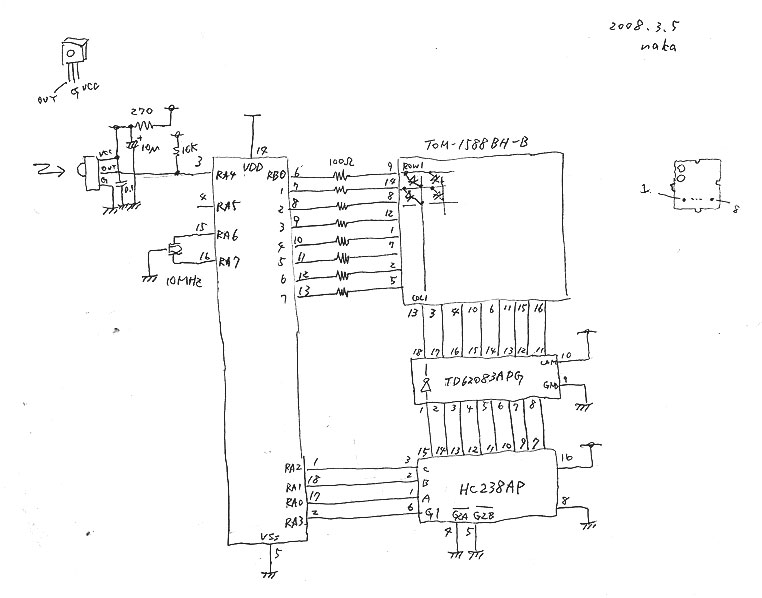 2008.3.5
naka
OUT G VCC
270
10μ
10K
VCC
OUT
G
0.1
3 RA4
4 RA5
15 RA6
16 RA7
10MHz
14
VDD
RB0 6
1 7
2 8
3 9
4 10
5 11
6 12
7 13
100Ω
TOM-1588BH-B
9 ROW1
14
8
12
1
7
2
5
COL1
13 3 4 10 6 11 15 16
1 8
18 17 16 15 14 13 12 11
COM 10
TD62083APG
GND 9
1 2 3 4 5 6 7 8
15 14 13 12 11 10 9 7
RA2 1 3 C
RA1 18 2 B
RA0 17 1 A
RA3 2 6 G1
HC238AP
16
8
G2A G2B
4 5
VSS
5